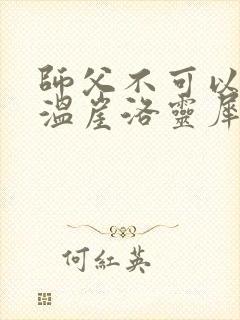 師父不可以
溫崖洛靈犀
何紅英